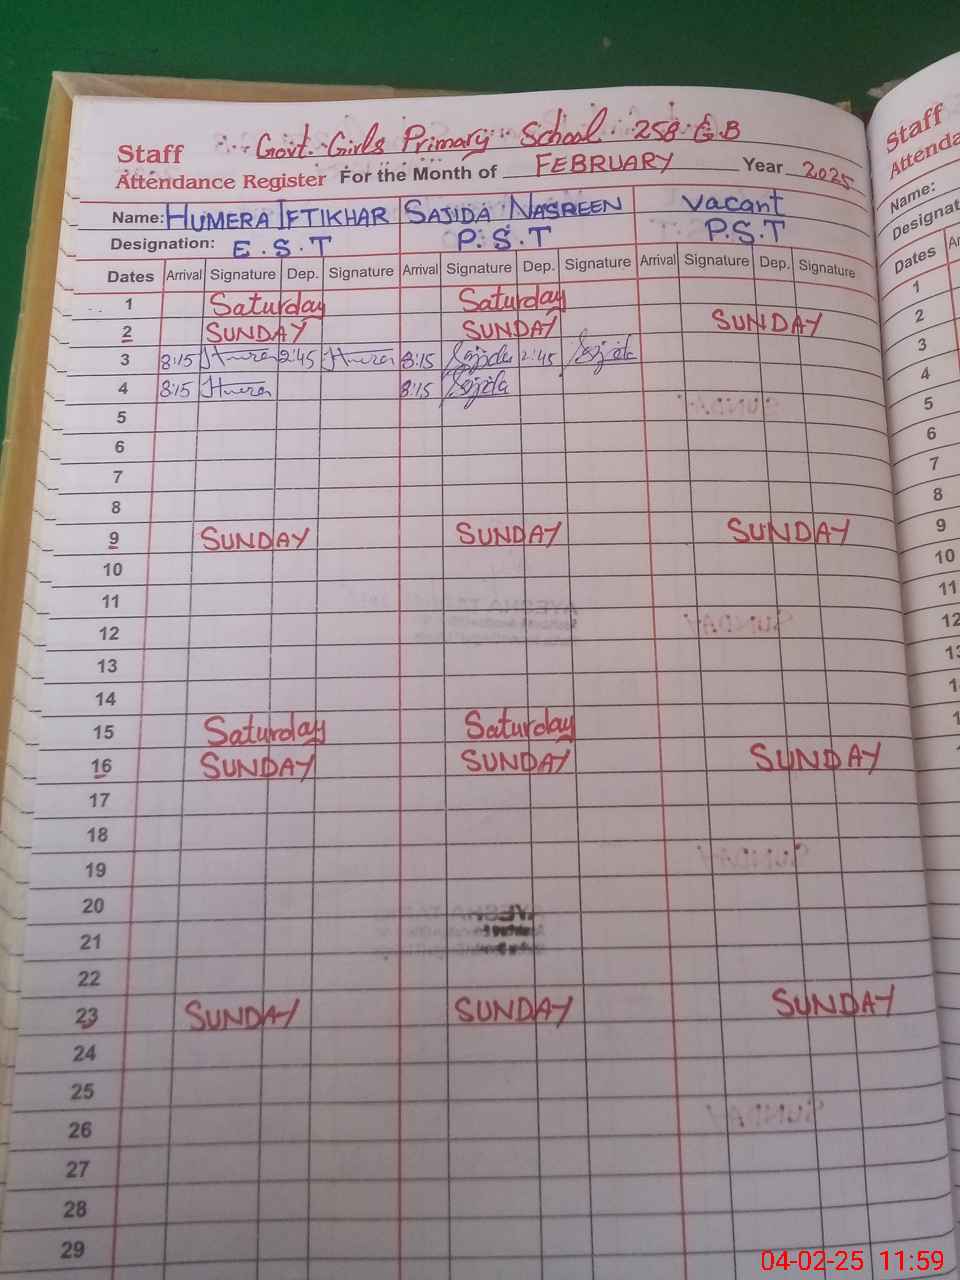 Govt. Girls Primary School 258 G.B
Staff
Attendance Register For the Month of FEBRUARY Year 2025
Name: HUMERA IFTIKHAR SAJIDA NASREEN Vacant
Designation: E.S.T P.S.T P.S.T
Dates Arrival Signature Dep. Signature Arrival Signature Dep. Signature Arrival Signature Dep. Signature
1 Saturday Saturday
2 SUNDAY SUNDAY SUNDAY
3 8:15 Humera 2:45 Humera 8:15 Sajida 2:45 Sajida
4 8:15 Humera 8:15 Sajida
5
6
7
8
9 SUNDAY SUNDAY SUNDAY
10
11
12
13
14
15 Saturday Saturday
16 SUNDAY SUNDAY SUNDAY
17
18
19
20
21
22
23 SUNDAY SUNDAY SUNDAY
24
25
26
27
28
29
Staff
Name:
Dates
1
2
3
4
5
6
7
8
9
10
11
12
04-02-25 11:59